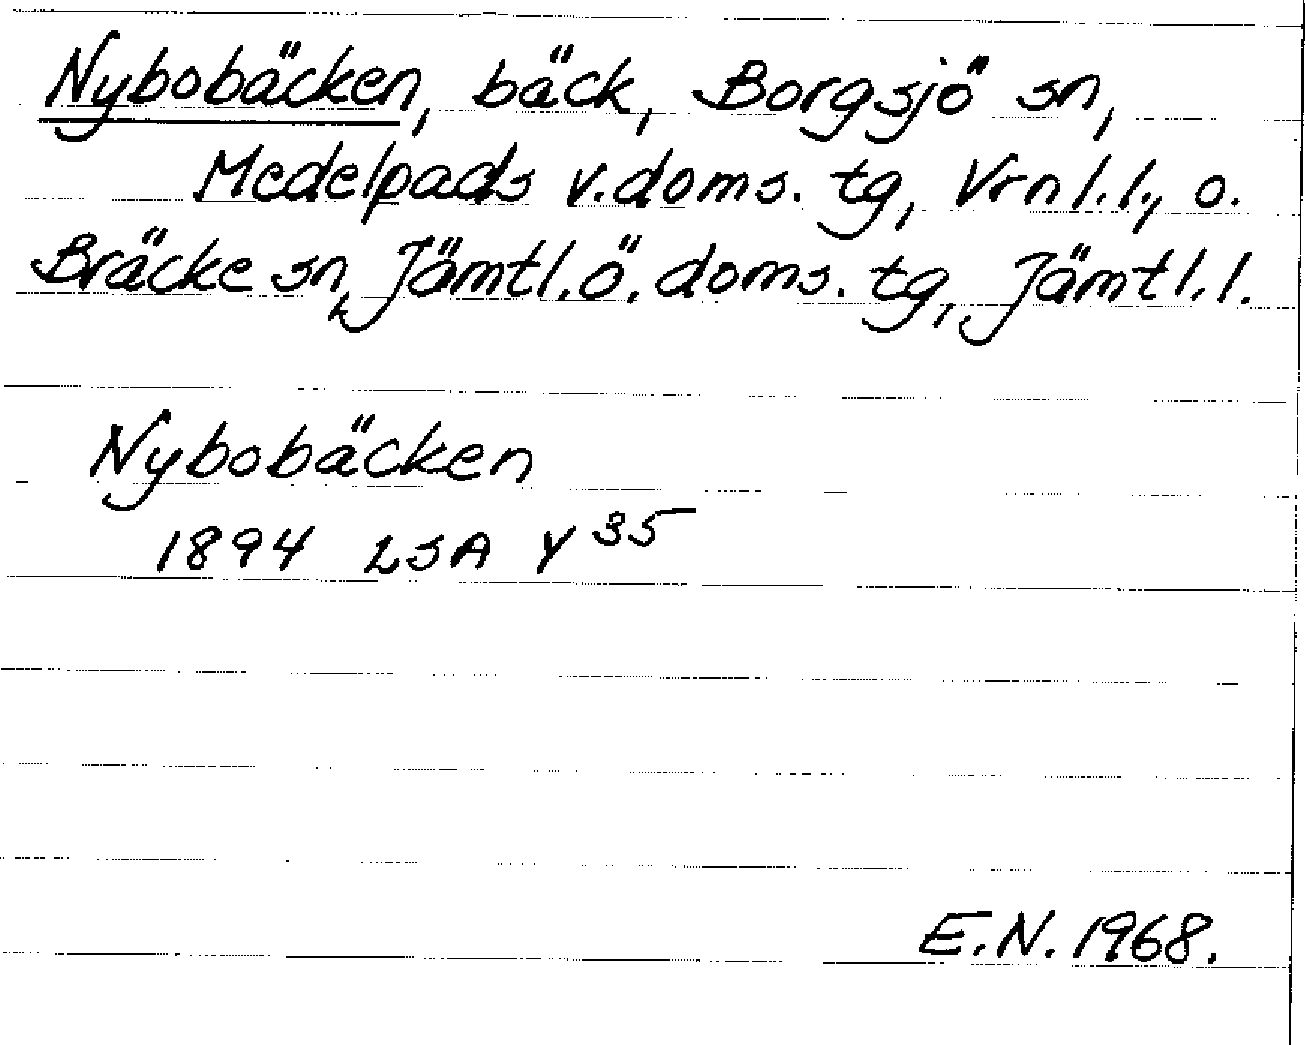 Nybobäcken, bäck, Borgsjö sn,
Medelpads v. doms. tg, Vrnl. l., o.
Bräcke sn, Jämtl. ö. doms. tg, Jämtl. l.
Nybobäcken
1894 LSA Y 35
E. N. 1968.